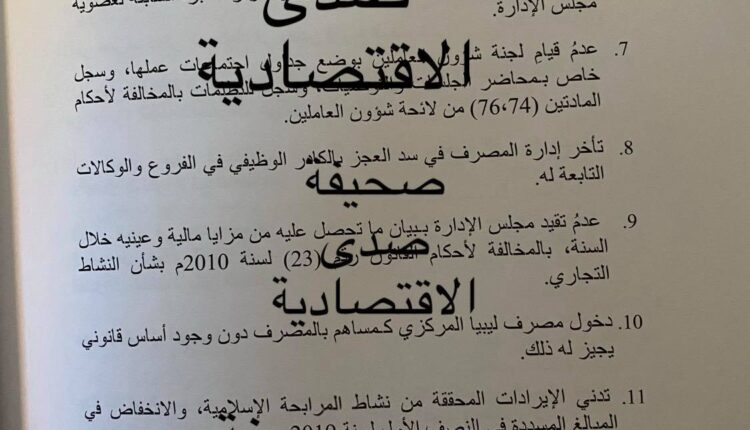 مجلس الإدارة.
7. عدمُ قيامِ لجنة شؤون العاملين بوضع جداول اجتماعات عملها، وسجل
خاص بمحاضر الجلسات وسجل للتظلمات بالمخالفة لأحكام
المادتين (76،74) من لائحة شؤون العاملين.
8. تأخر إدارة المصرف في سد العجز بالكادر الوظيفي في الفروع والوكالات
التابعة له.
9. عدمُ تقيد مجلس الإدارة ببيان ما تحصل عليه من مزايا مالية وعينيه خلال
السنة، بالمخالفة لأحكام القانون رقم (23) لسنة 2010م بشأن النشاط
التجاري.
10. دخول مصرف ليبيا المركزي كمساهم بالمصرف دون وجود أساس قانوني
يجيز له ذلك.
11. تدني الإيرادات المحققة من نشاط المرابحة الإسلامية، والانخفاض في
المبالغ المسددة في النصف الأول لسنة 2019
الاقتصادية
صحيفة
صدى
الاقتصادية